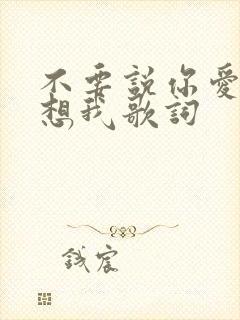 不要說你愛
想我歌詞
鋮宸